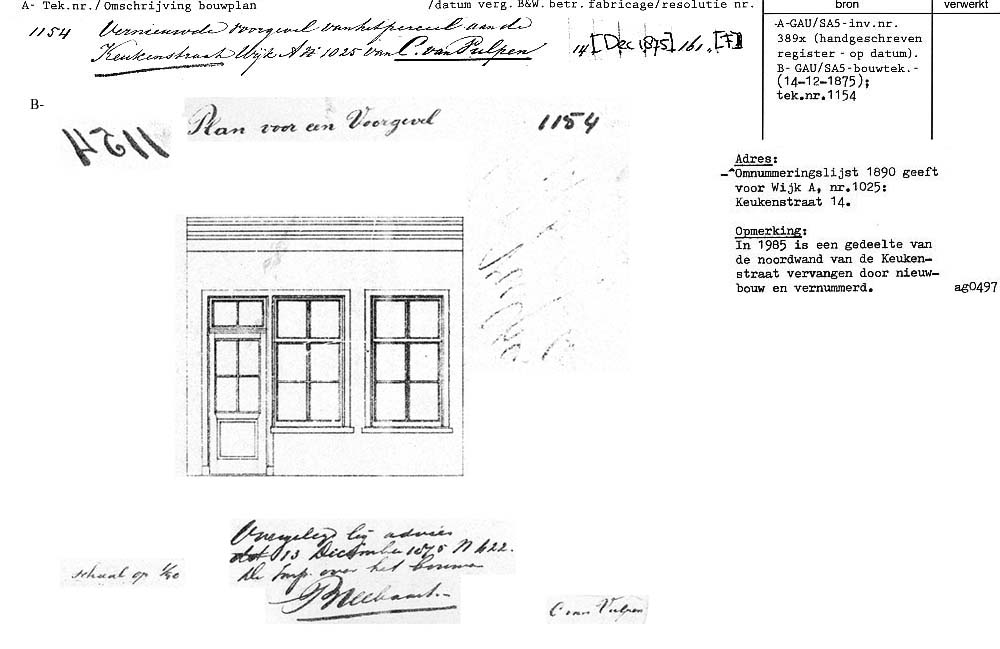 A- Tek.nr./Omschrijving bouwplan
/datum verg. B&W.betr.fabricage/resolutie nr.
bron
verwerkt
1154 Vernieuwde voorgevel van het perceel aan de
Keukenstraat Wijk A No 1025 van C. van Vulpen
14 [Dec 1875] 161. [F]
-A-GAU/SA5-inv.nr.
389x (handgeschreven
register - op datum).
B- GAU/SA5-bouwtek.-
(14-12-1875);
tek.nr.1154
B-
1154
Plan voor een Voorgevel
1154
Adres:
Omnummeringslijst 1890 geeft
voor Wijk A, nr.1025:
Keukenstraat 14.
Opmerking:
In 1985 is een gedeelte van
de noordwand van de Keuken-
straat vervangen door nieuw-
bouw en vernummerd.
ag0497
Overgelegd bij advies
dd 13 December 1875 N 422.
De Insp. over het bouwen
schaal op 1/50
C van Vulpen